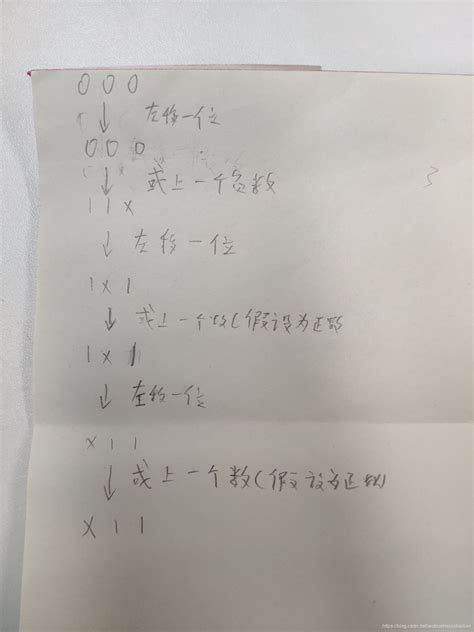 0 0 0
↓ 左移一位
0 0 0
↓ 或上一个负数
1 1 x
↓ 左移一位
1 x 1
↓ 或上一个数(假设为正数
1 x 1
↓ 左移一位
x 1 1
↓ 或上一个数(假设为正数)
x 1 1
3